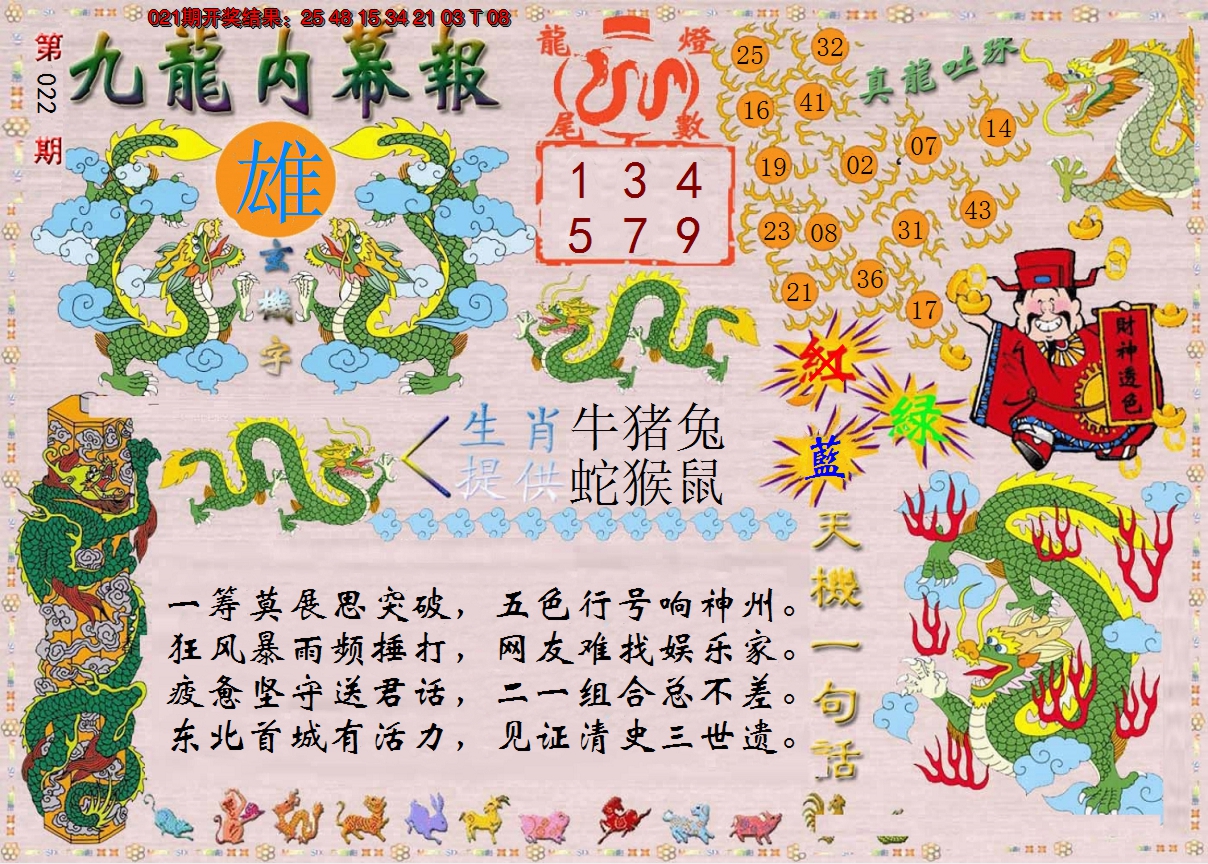 021期开奖结果：25 48 15 34 21 03 T 08
第022期
九龍内幕報
雄
玄機字
龍燈
尾數
1 3 4
5 7 9
真龍吐珠
25 32
16 41
19 02 07 14
23 08 31 43
21 36 17
財神透色
紅
綠
藍
生肖牛猪兔
提供蛇猴鼠
天機一句話
一筹莫展思突破，五色行号响神州。
狂风暴雨频捶打，网友难找娱乐家。
疲惫坚守送君话，二一组合总不差。
东北首城有活力，见证清史三世遗。